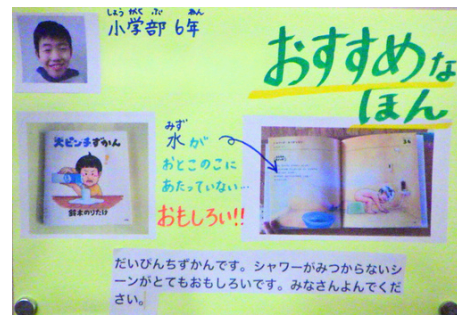 しょうがくぶ ねん
小学部 6年
おすすめな
ほん
大ピンチずかん
鈴木のりたけ
みず
水が
おとこのこに
あたっていない…
おもしろい!!
だいぴんちずかんです。シャワーがみつからないシ
ーンがとてもおもしろいです。みなさんよんでくだ
さい。